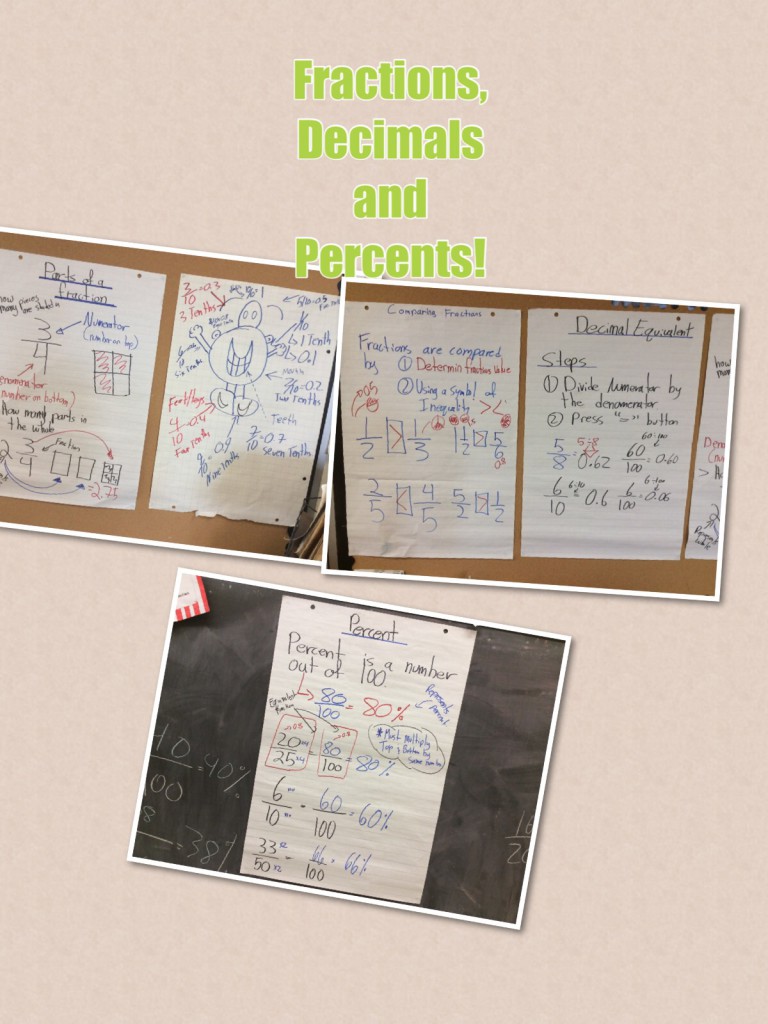 Fractions,
Decimals
and
Percents!
Parts of a
fraction
how many pieces
are shaded in
3
4
Numerator
(number on top)
(number on bottom)
How many parts in
the whole
2 3/4
fraction
=2.75
3/10 = 0.3
3 Tenths
1 Tenth
0.1
mouth
2/10 = 0.2
Two Tenths
Teeth
7/10 = 0.7
Seven Tenths
Feet/legs
4/10 = 0.4
Four Tenths
Nine Tenths
Six Tenths
Comparing Fractions
Fractions are compared
by ① Determin fraction Value
② Using a symbol of
Inequality > <
1/2 > 1/3 1 1/2 > 5/6
3/5 < 4/5 5/2 > 1/2
Decimal Equivalent
Steps
① Divide Numerator by
the denomerator
② Press "=" button
5÷8 60÷100
5/8 = 0.62 60/100 = 0.60
6÷10 6÷100
6/10 = 0.6 6/100 = 0.06
Percent
Percent is a number
out of 100.
80/100 = 80%
Represents
Percent
Equivalent
Fraction
20/25 = 80/100 = 80%
* Must multiply
Top & Bottom by
same number
6/10 = 60/100 = 60%
33/50 = 66/100 = 66%
40
100 = 40%
= 38%